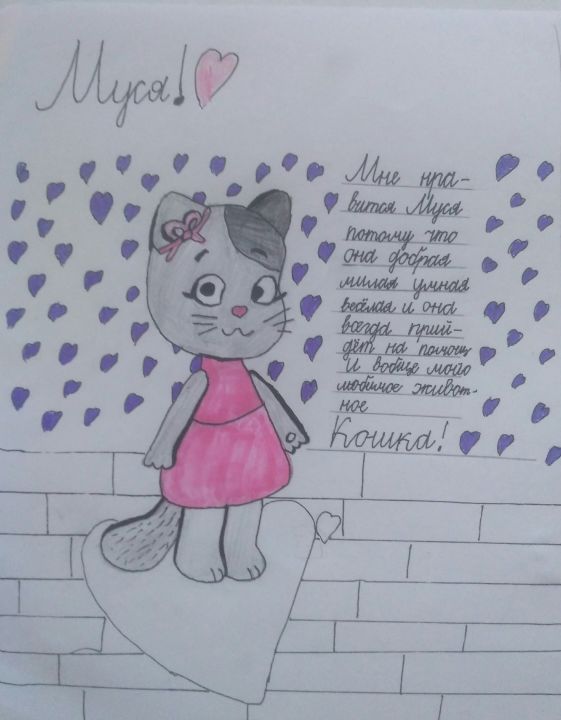 Муся!
Мне нра-
вится Муся
потому что
она добрая
милая умная
весёлая и она
всегда прий-
дёт на помощ
И вобще моё
любимое живот-
ное
Кошка!